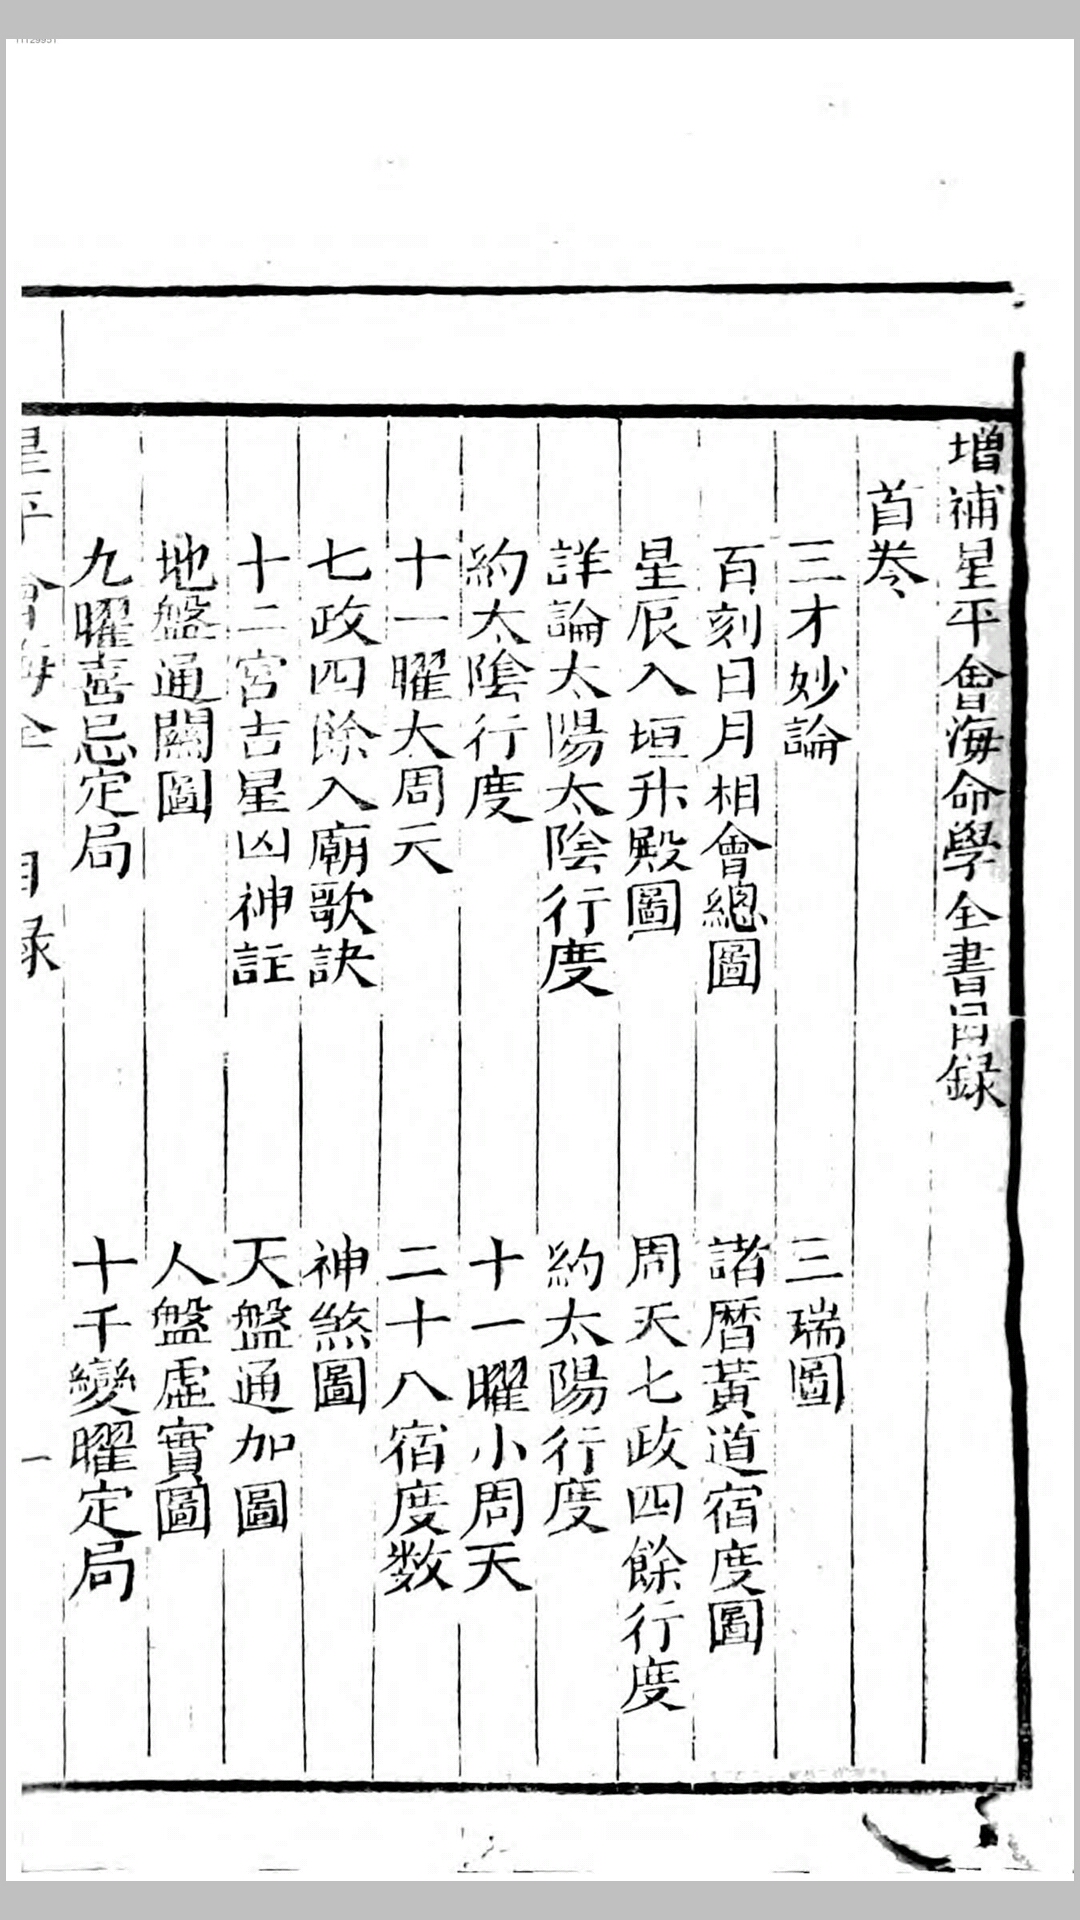 增補星平會海命學全書目録
首巻
三才妙論
三瑞圖
百刻日月相會總圖
諸曆黃道宿度圖
星辰入垣升殿圖
周天七政四餘行度
詳論太陽太陰行度
約太陽行度
約太陰行度
十一曜小周天
十一曜大周天
二十八宿度数
七政四餘入廟歌訣
神煞圖
十二宮吉星凶神註
天盤通加圖
地盤通關圖
人盤虛實圖
九曜喜忌定局
十干變曜定局
星平會海全 目录 一